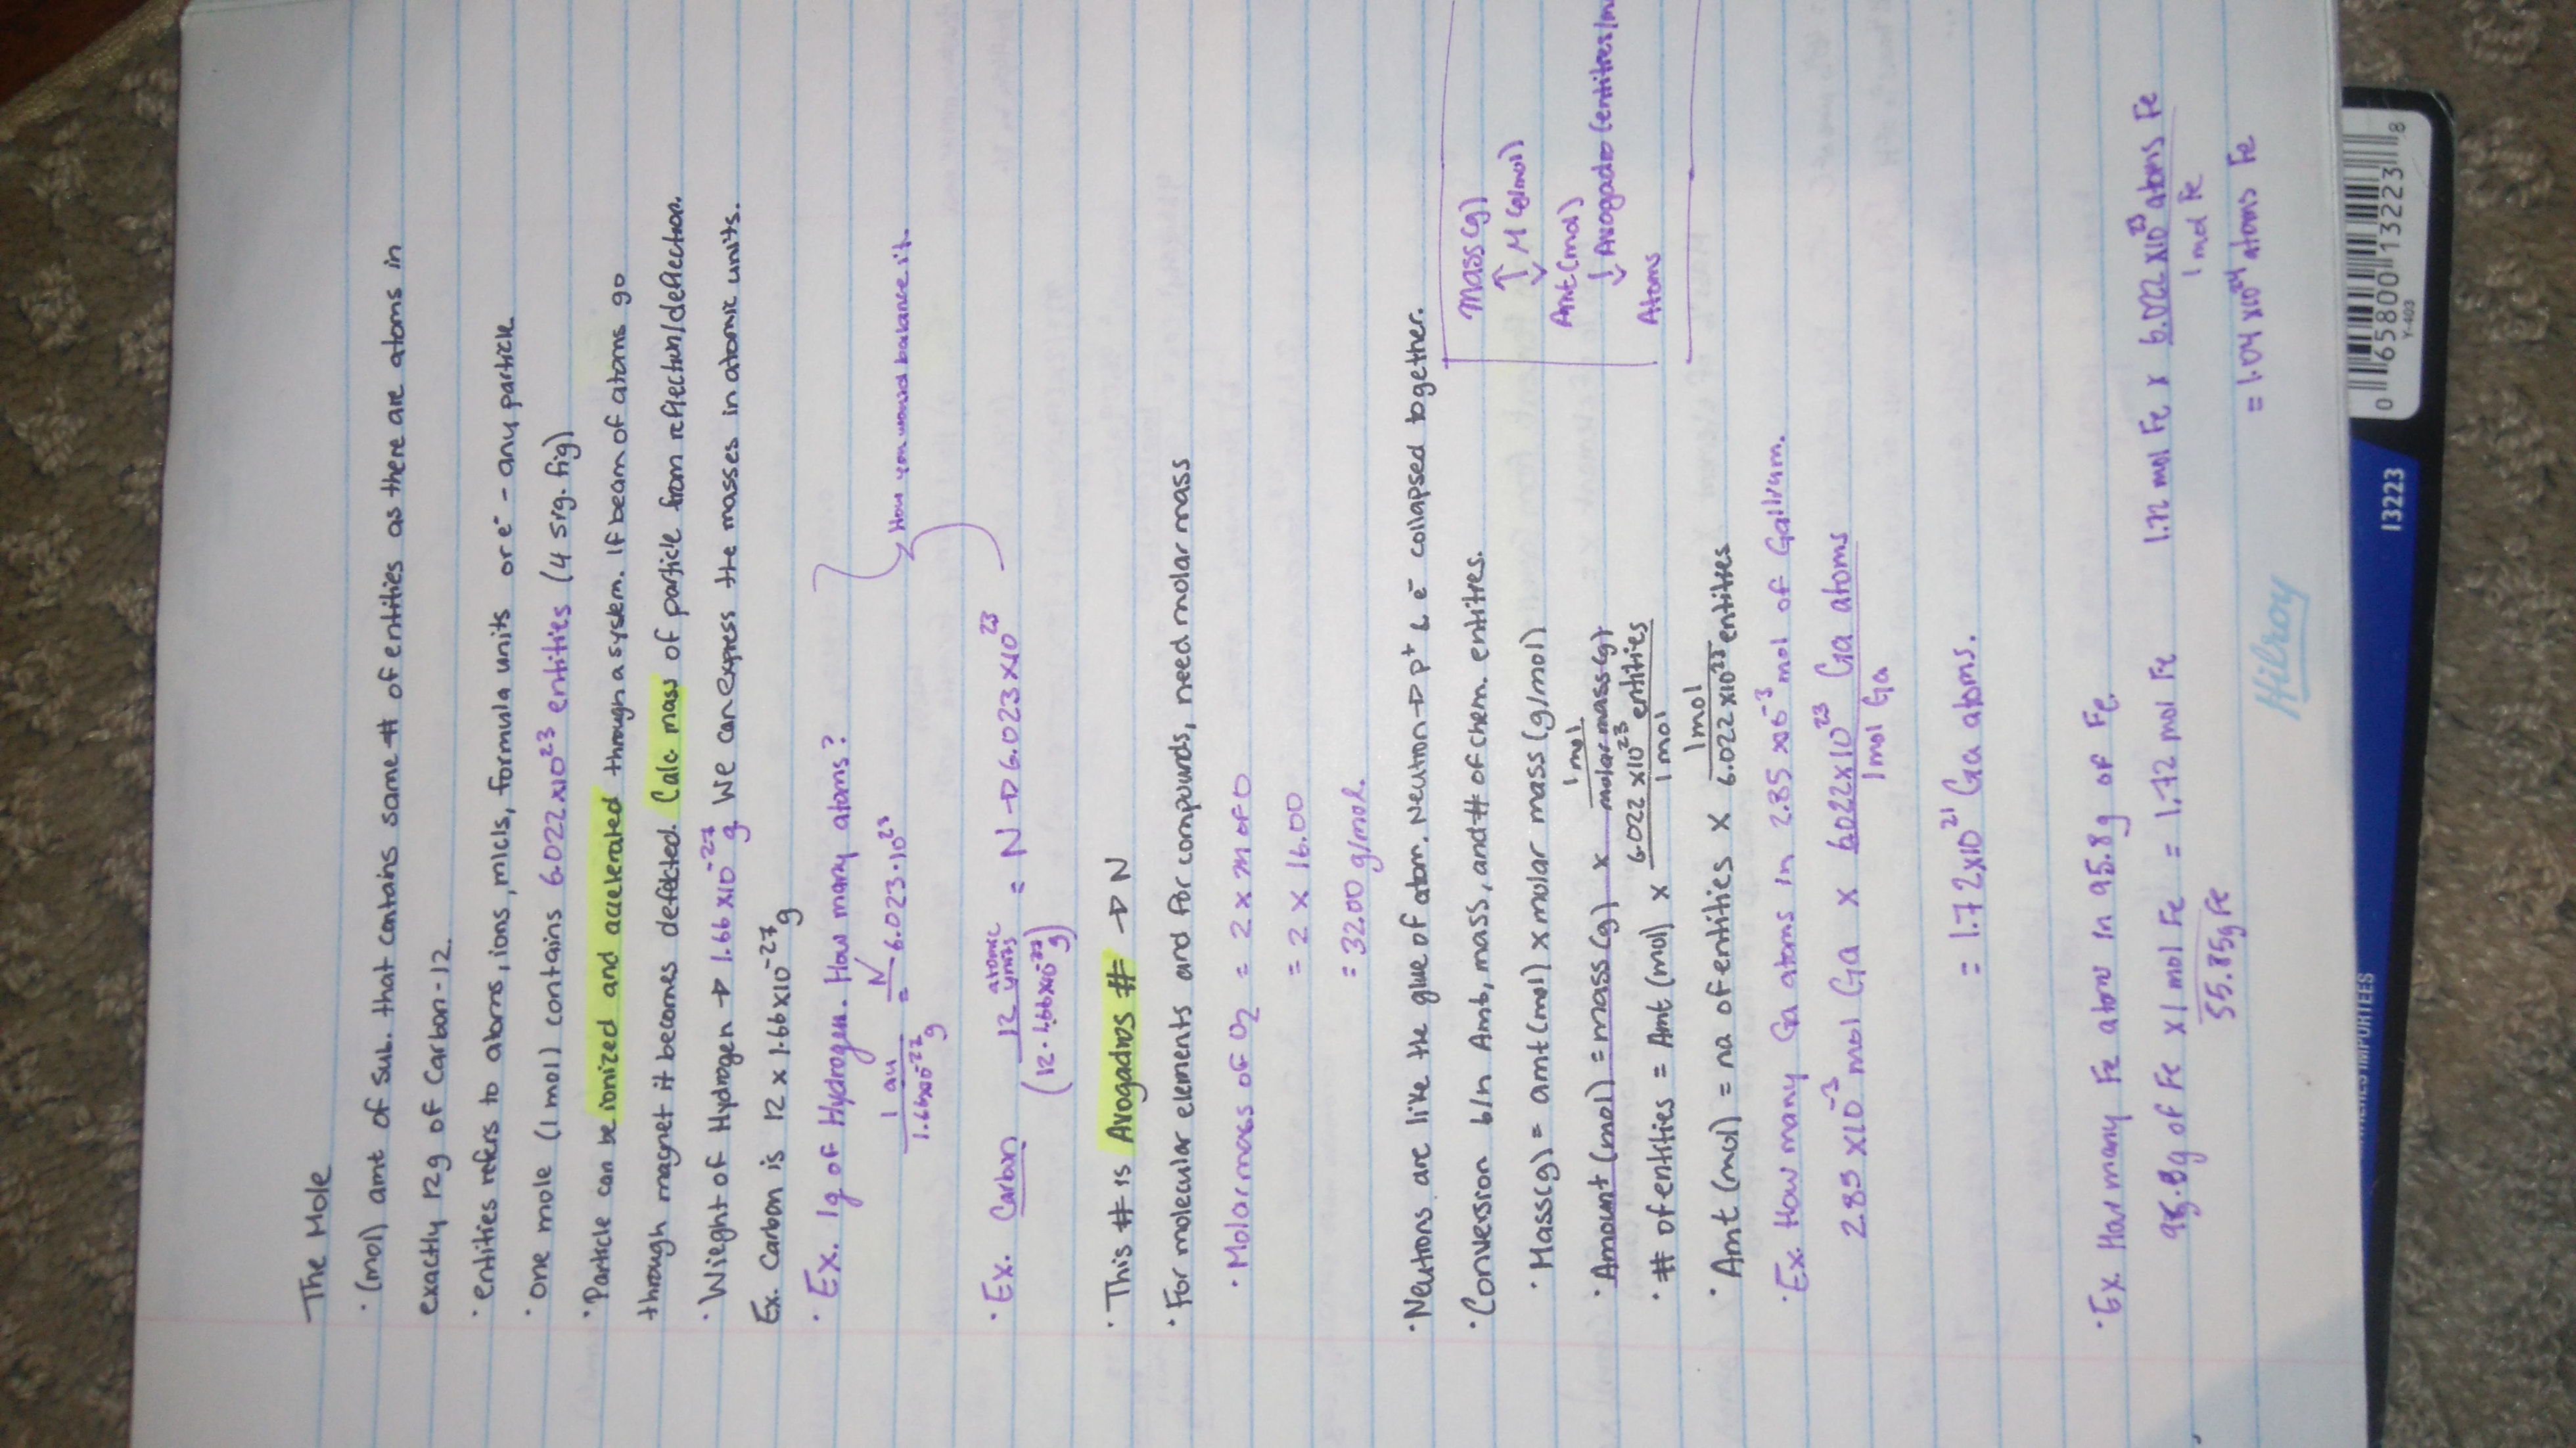 The Mole
· (mol) amt of sub. that contains same # of entities as there are atoms in
exactly 12g of Carbon-12.
· entities refers to atoms, ions, mlcls, formula units or e⁻ - any particle.
· one mole (1 mol) contains 6.022x10²³ entities (4 sig. fig)
· Particle can be ionized and accelerated through a system. If beam of atoms go
through magnet it becomes deflected. Calc mass of particle from reflection/deflection.
· Wieght of Hydrogen → 1.66x10⁻²⁷ g We can express the masses in atomic units.
Ex. Carbon is 12 x 1.66x10⁻²⁷ g
· Ex. 1g of Hydrogen. How many atoms?
1 au = N - 6.023·10²³
1.66x10⁻²⁷ g
How you would balance it.
· Ex. Carbon 12 atomic units = N → 6.023x10²³
(12 · 1.66x10⁻²⁷ g)
· This # is Avogadros # → N
· For molecular elements and for compunds, need molar mass
· Molar mass of O₂ = 2 x M of O
= 2 x 16.00
= 32.00 g/mol.
· Neutrons are like the glue of atom. Neutron → p⁺ & e⁻ collapsed together.
· Conversion b/n Amt, mass, and # of chem. entites.
· Mass(g) = amt (mol) x molar mass (g/mol)
· Amount (mol) = mass (g) x 1 mol / molar mass (g)
· # of entities = Amt (mol) x 6.022 x10²³ entities / 1 mol
· Amt (mol) = no of entities x 1mol / 6.022 x10²³ entites
Mass (g)
↑↓ M (g/mol)
Amt (mol)
↓ Avogadro (entites/m
Atoms
· Ex. How many Ga atoms in 2.85 x10⁻³ mol of Gallium.
2.85 x10⁻³ mol Ga x 6.022x10²³ Ga atoms / 1 mol Ga
= 1.72x10²¹ Ga atoms.
· Ex. How many Fe atoms in 95.8g of Fe.
95.8g of Fe x 1 mol Fe / 55.85g Fe = 1.72 mol Fe
1.72 mol Fe x 6.022 x10²³ atoms Fe / 1 mol Fe
= 1.04 x10²⁴ atoms Fe
Hilroy
13223
0 65800 13223 8
Y-403